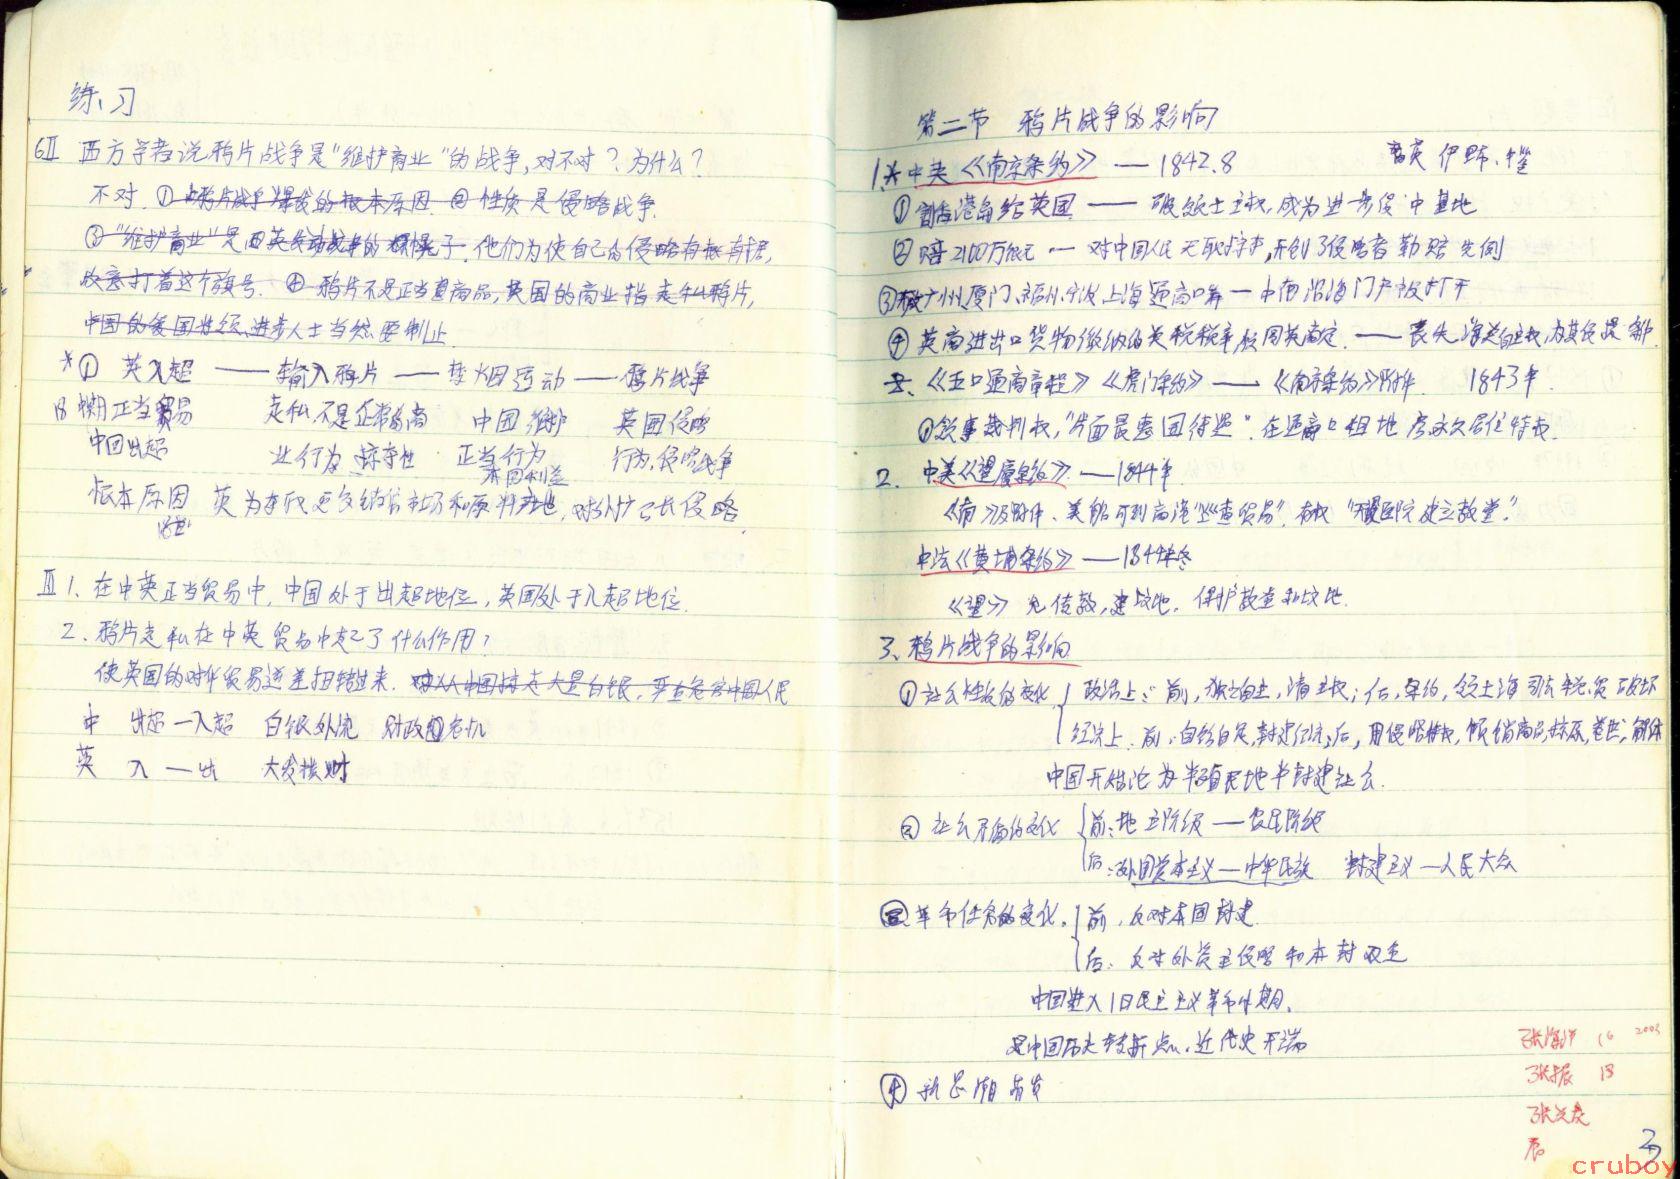 练习
6Ⅱ 西方学者说鸦片战争是"维护商业"的战争,对不对?为什么?
不对.①鸦片战争爆发的根本原因.②性质是侵略战争.
③"维护商业"是西英发动战争的幌子.他们为使自己的侵略有根有据,
故意打着这个旗号.④鸦片不是正当商品,英国的商业指走私鸦片,
中国的爱国官员、进步人士当然要制止.
*① 英入超 —— 输入鸦片 —— 禁烟运动 —— 鸦片战争
18 期正当贸易 走私.不是正常的商 中国维护 英国侵略
中国出超 业行为 掠夺性 正当行为 行为,侵略战争
本国利益
根本原因 英为在代更多销售市场和原料产地,对外扩张侵略.
Ⅲ 1.在中英正当贸易中,中国处于出超地位,英国处于入超地位.
2.鸦片走私在中英贸易中起了什么作用?
使英国的对华贸易逆差扭转过来.对从中国掠走大量白银,严重危害中国人民
中 出超—入超 白银外流 财政危机
英 入—出 大发横财
第二节 鸦片战争的影响
1.*中英《南京条约》—— 1842.8 耆英 伊里布、
①割香港岛给英国 —— 破领土主权,成为进一步侵中基地
②赔2100万银元 — 对中国人民无耻掠夺,开创了侵略者勒赔先例
③广州,厦门,福州,宁波,上海通商口岸—中南沿海门户被打开
④英商进出口货物缴纳的关税税率,须同英商定.——丧失海关自主权,为其侵提
《五口通商章程》《虎门条约》——《南京条约》附件. 1843年.
①领事裁判权,"片面最惠国待遇".在通商口租地房永久居住特权.
2. 中美《望厦条约》.——1844年
《南》及附件、美船可到商港"巡查贸易".有权"医院建立教堂."
中法《黄埔条约》——1844年冬
《望》 允传教,建坟地.保护教堂和坟地.
3、鸦片战争的影响
①社会性质的变化.政治上:前,独立自主,清主权;后,条约,领土海司法税贸破坏
经济上.前:自给自足,封建经济;后,用侵略特权,倾销商品,掠原,卷世,解体
中国开始沦为半殖民地半封建社会.
②社会矛盾的变化 前:地主阶级——农民阶级
后:外国资本主义—中华民族 封建主义—人民大众
③革命任务的变化.前,反对本国封建.
后:反对外资主侵略和本封双重
中国进入旧民主主义革命时期.
是中国历史转折点、近代史开端
④ 新思潮萌发
张海 16 2003
张振 18
张
cruboy